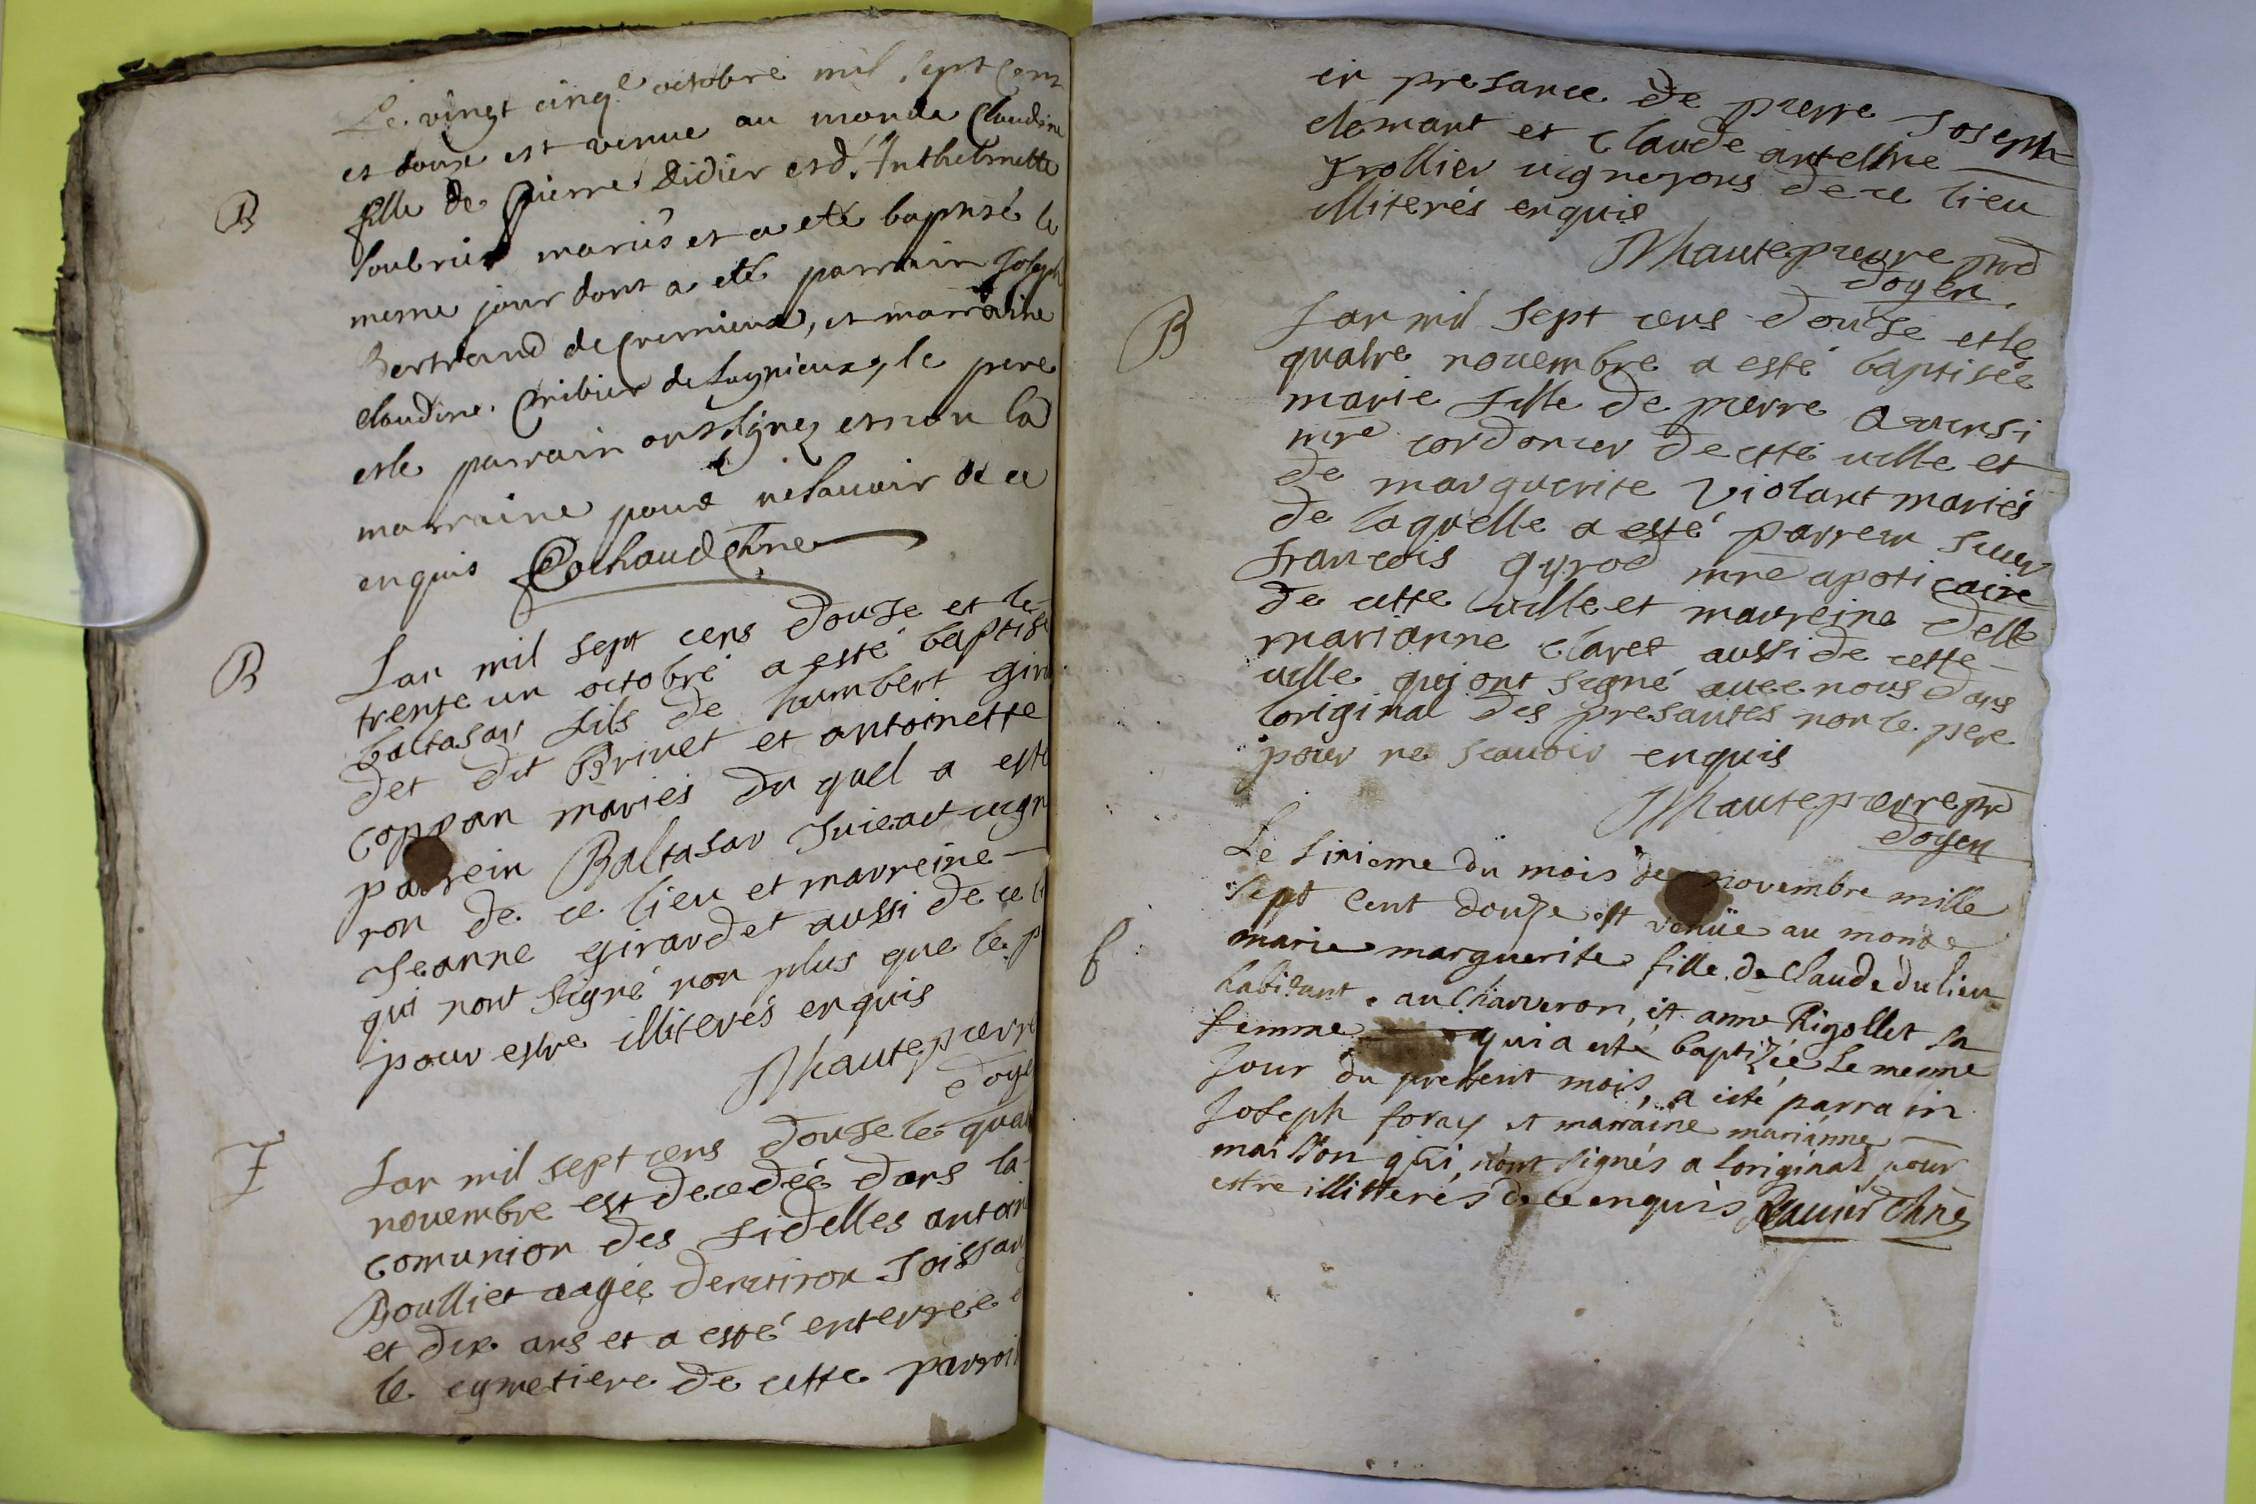 B
Le vingt cinq.e octobre mil sept cent
et douze est venue au monde Claudine
fille de Pierre Didier et d'Anthelmette
mariés et a eté baptisé le
meme jour dont a eté parrain Joseph
Bertrand de Cremieux, et marraine
Claudine Cribier de Lagnieux, le pere
et le parrain ont signez et non la
marraine pour ne sauoir de ce
enquis Cochaud
B
Lan mil sept cens douse et le
trente un octobre a esté baptisé
baltasar fils de humbert girar
det dit Brivet et antoinette
coppan mariés du quel a esté
parrein Baltasar uigne
ron de ce lieu et marreine
Jeanne girardet aussi de ce li
qui nont signé non plus que le p
pour estre illiterés enquis
Jhautepierre
doye
F
Lan mil sept cens douse le quat
novembre est decedée dans la
comunion des fidelles antoi
Boulliet aagée denviron soissan
et dix ans et a esté enterree
le cymetiere de cette parroi
en presance de pierre Joseph
clemant et Claude antelme
Trollier uignerons de ce lieu
illiterés enquis
Jhautepierre pre
doyen
B
Lan mil sept cens douse et le
quatre nouembre a esté baptisée
marie fille de pierre
mre cordonier de cette uille et
de marguerite Violant mariés
de laquelle a esté parrein sieur
francois gyrod mre apoticaire
de cette uille et marreine delle
marianne claret aussi de cette
uille qui ont signé auec nous dans
loriginal des presantes non le pere
pour ne scauoir enquis
Jhautepierre pre
doyen
Le sixieme du mois de novembre mille
sept cent douze est venüe au monde
marie marguerite fille de Claude du lieu
habitant au Charveron, et anne Rigollet sa
femme qui a esté baptizée le meme
Jour du present mois, a esté parrain
Joseph foray et marraine marianne
maison qui n'ont signés a loriginal pour
estre illitterés de ce enquis